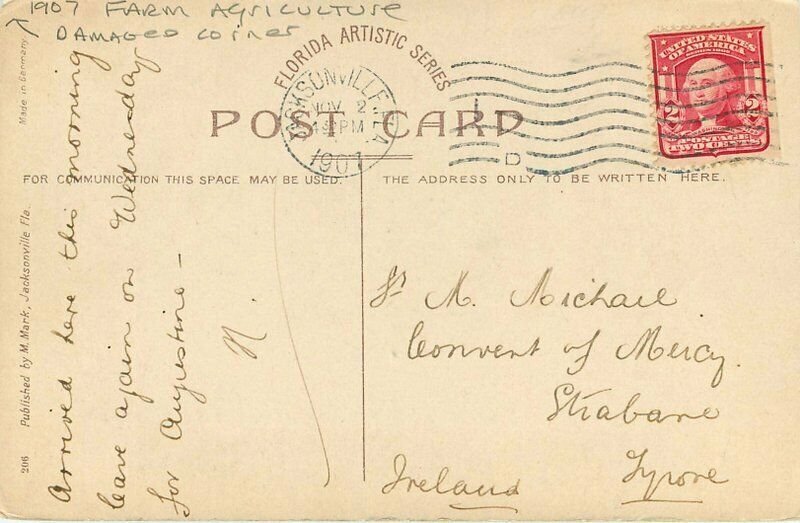 1907 FARM AGRICULTURE
DAMAGED CORNER
FLORIDA ARTISTIC SERIES
POST CARD
JACKSONVILLE, FLA.
NOV 2
PM
1907
D
UNITED STATES
OF AMERICA
2 2
POSTAGE
TWO CENTS
FOR COMMUNICATION THIS SPACE MAY BE USED.
THE ADDRESS ONLY TO BE WRITTEN HERE.
Made in Germany
206 Published by M. Mark, Jacksonville Fla.
Arrived here this morning
leave again on Wednesday
for Augustine —
N.
Sr M. Michael
Convent of Mercy.
Strabane
Tyrone
Ireland